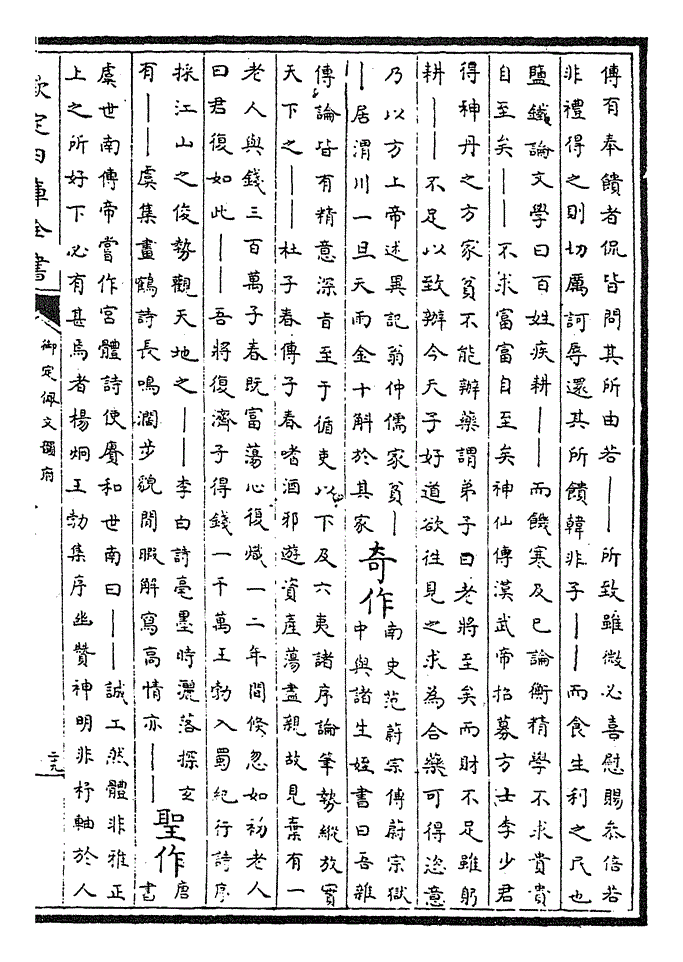 傳有奉饋者侃皆問其所由若——所致雖微必喜慰賜叅倍若
非禮得之則切厲訶辱還其所饋韓非子——而食生利之民也
鹽鐵論文學曰百姓疾耕——而饑寒及已論衡精學不求貴貴
自至矣——不求富富自至矣神仙傳漢武帝招募方士李少君
得神丹之方家貧不能辦藥謂弟子曰老將至矣而財不足雖躬
耕——不足以致辦今天子好道欲往見之求為合藥可得恣意
乃以方上帝述異記翁仲儒家貧—
—居渭川一旦天雨金十斛於其家
奇作
南史范蔚宗傳蔚宗獄
中與諸生姪書曰吾雜
傳論皆有精意深旨至于循吏以下及六夷諸序論筆勢縱放實
天下之——杜子春傳子春嗜酒邪遊資產蕩盡親故見棄有一
老人與錢三百萬子春既富蕩心復熾一二年間倐忽如初老人
曰君復如此——吾將復濟子得錢一千萬王勃入蜀紀行詩序
採江山之俊勢觀天地之——李白詩毫墨時灑落探玄
有——虞集畫鶴詩長鳴濶步貌閒暇解寫高情亦——
聖作
唐
書
虞世南傳帝嘗作宮體詩使賡和世南曰——誠工然體非雅正
上之所好下必有甚焉者楊炯王勃集序幽贊神明非杼軸於人
欽定四庫全書
御定佩文韻府